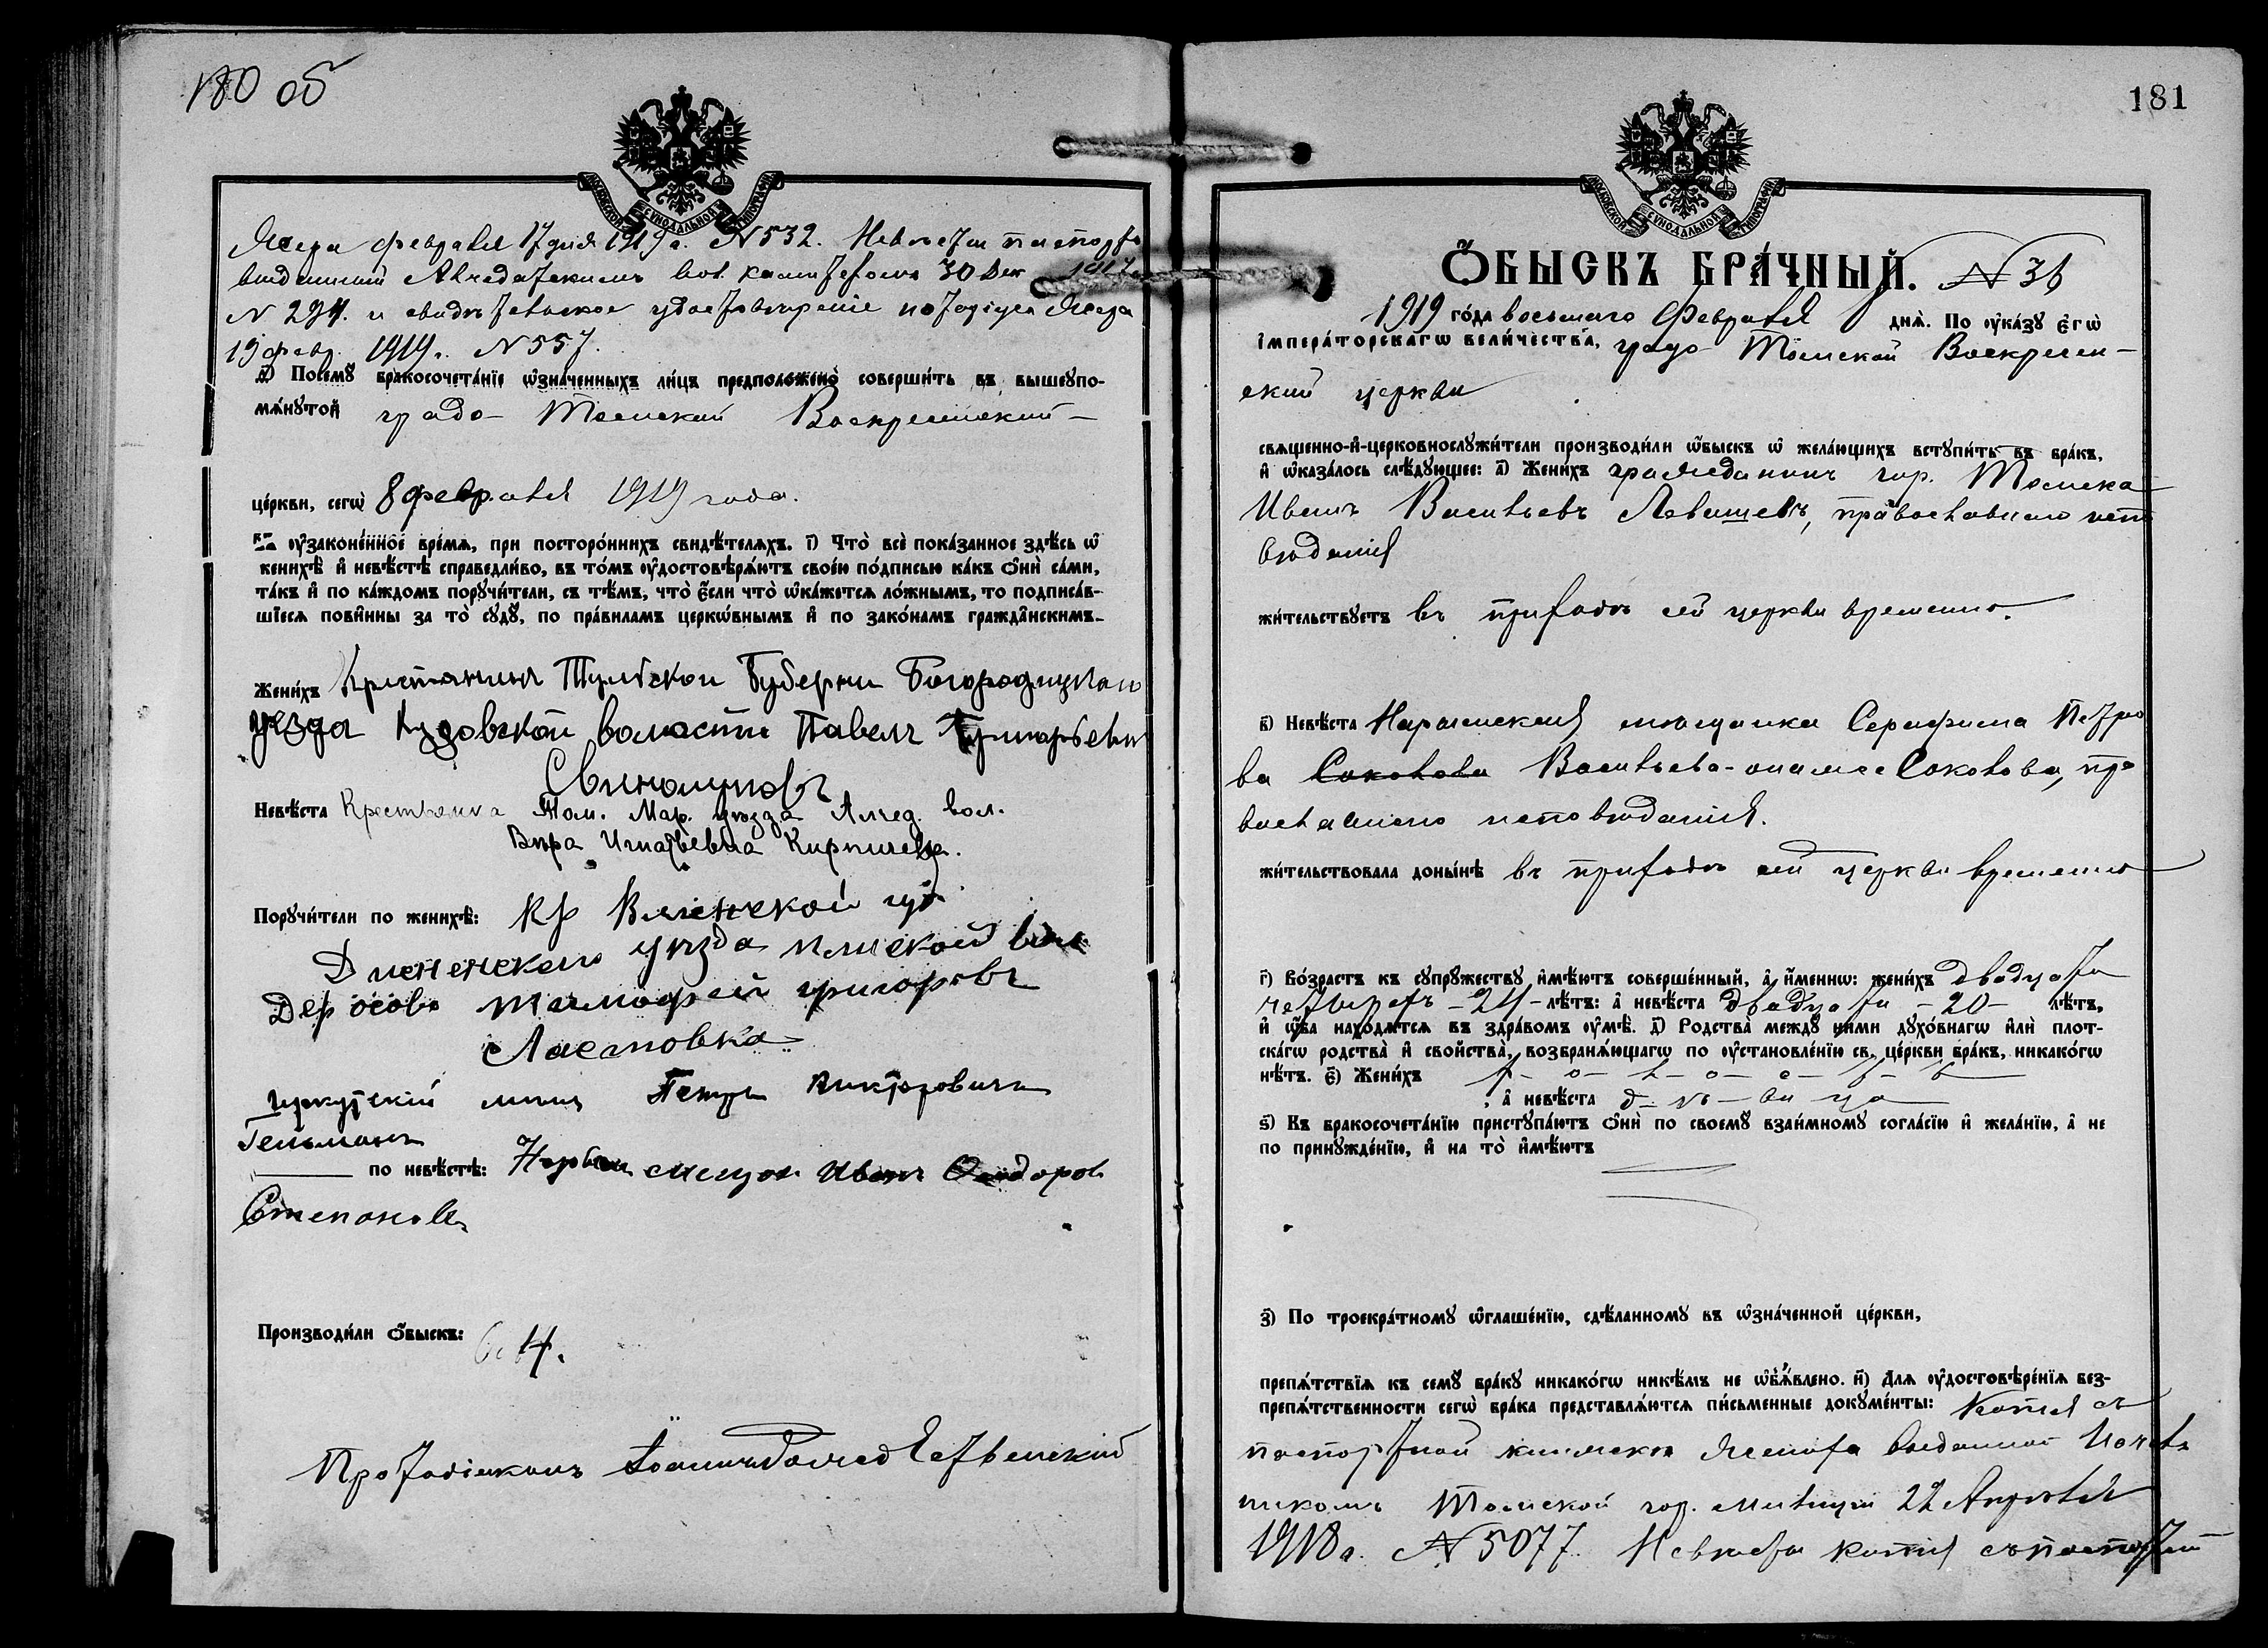 180 об
МОСКОВСКОЙ СѴНОДАЛЬНОЙ ТИПОГРАФІИ
февраля 17 дня 1919 г. N 532. Невесты паспортъ
выданный вол. 30 Дек 1917
N 294. и удостовѣреніе
19 февр. 1919 г. N 557.
Посемꙋ бракосочета́нїе ѡ҆зна́ченныхъ ли́цъ предположено̀ соверши́ть въ вышеꙋпо-
мѧ́нꙋтой градо- Томской Воскресенской-
це́ркви, сегѡ̀ 8 февраля 1919 года.
въ ᲂу҆зако́ненное вре́мѧ, при посторо́ннихъ свидѣ́телѧхъ. і҃) Что̀ всѐ пока́занное здѣ́сь ѡ҆
женихѣ̀ и҆ невѣ́стѣ справедли́во, въ то́мъ ᲂу҆достовѣрѧ́ютъ своею по́дписью ка́къ ѻ҆нѝ са́ми,
та́къ и҆ по ка́ждомъ порꙋчи́тели, съ тѣ́мъ, что̀ є҆́сли что̀ ѡ҆ка́жетсѧ ло́жнымъ, то подписа́в-
шїесѧ пови́нны за то̀ сꙋдꙋ̀, по пра́виламъ церкѡ́внымъ и҆ по зако́намъ гражда́нскимъ.
Жени́хъ Кристанинъ Тульской Губерни Богородицкаго
уезда Кузовской воласти Павелъ Григорьевичъ
Невѣ́ста Крестьянка Том. Мар. уѣзда Алчед. вол.
Вѣра Игнатьевна Кирпичева.
Порꙋчи́тели по женихѣ̀: Кр Виленской губ
Дисненскаго уѣзда вол
Дер осово Тимофей григоровъ
Ластовка
Иркутскій мѣщ Петръ Викторовичъ
Гельманъ
по невѣ́стѣ: мещон Иванъ Феодоров
Степановъ
Производи́ли ѻ҆́быскъ:
Протодіаконъ Іоаннъ
181
МОСКОВСКОЙ СѴНОДАЛЬНОЙ ТИПОГРАФІИ
Ѻ҆́БЫСКЪ БРА́ЧНЫЙ. N 36
1919 го́да восьмаго Февраля днѧ̀. По ᲂу҆ка́зꙋ є҆гѡ̀
і҆мпера́торскагѡ вели́чества, градо- Томской Воскресен-
ской церкви
свѧщенно-и҆-церковнослꙋжи́тели производи́ли ѻ҆́быскъ ѡ҆ жела́ющихъ встꙋпи́ть въ бра́къ,
и҆ ѡ҆каза́лось слѣ́дꙋющее: а҃) Жени́хъ гражданинъ гор. Томска
Иванъ Васильевъ Левашевъ, православнаго испо
вѣданія
жи́тельствꙋетъ въ приходѣ сей церкви временно.
в҃) Невѣ́ста Нарымская мѣщанка Серафима Петро
ва Соколова Васильева-она же Соколова, пра
вославнаго исповѣданія.
жи́тельствовала доны́нѣ въ приходѣ сей церкви временно
г҃) Во́зрастъ къ сꙋпрꙋ́жествꙋ и҆мѣ́ютъ соверше́нный, а҆ и҆́меннѡ: жени́хъ двадцати
четырехъ -24- лѣ́тъ: а҆ невѣ́ста двадцати -20- лѣ́тъ,
и҆ ѻ҆́ба нахо́дѧтсѧ въ здра́вомъ ᲂу҆мѣ̀. д҃) Родства̀ междꙋ̀ ни́ми дꙋхо́внагѡ и҆лѝ плот-
ска́гѡ родства̀ и҆ свойства̀, возбранѧ́ющагѡ по ᲂу҆становле́нїю св. це́ркви бра́къ, никако́гѡ
нѣ́тъ. є҃) Жени́хъ х-о-л-о-с-т-ъ
, а҆ невѣ́ста д-ѣ-ви-ца
ѕ҃) Къ бракосочета́нїю пристꙋпа́ютъ ѻ҆нѝ по своемꙋ̀ взаи́мномꙋ согла́сїю и҆ жела́нїю, а҆ не
по принꙋжде́нїю, и҆ на то̀ и҆мѣ́ютъ
з҃) По троекра́тномꙋ ѡ҆глаше́нїю, сдѣ́ланномꙋ въ ѡ҆зна́ченной це́ркви,
препѧ́тствїѧ къ семꙋ̀ бра́кꙋ никако́гѡ никѣ́мъ не ѡ҆бъѧ́влено. и҃) Для ᲂу҆достовѣре́нїѧ без-
препѧ́тственности сегѡ̀ бра́ка представлѧ́ютсѧ пи́сьменные докꙋме́нты: Копія съ
паспортной книжки жениха выданной Началь
никомъ Томской гор. милиціи 22 Апрѣля
1918 г. N 5077. Невѣсты копія съ паспортной